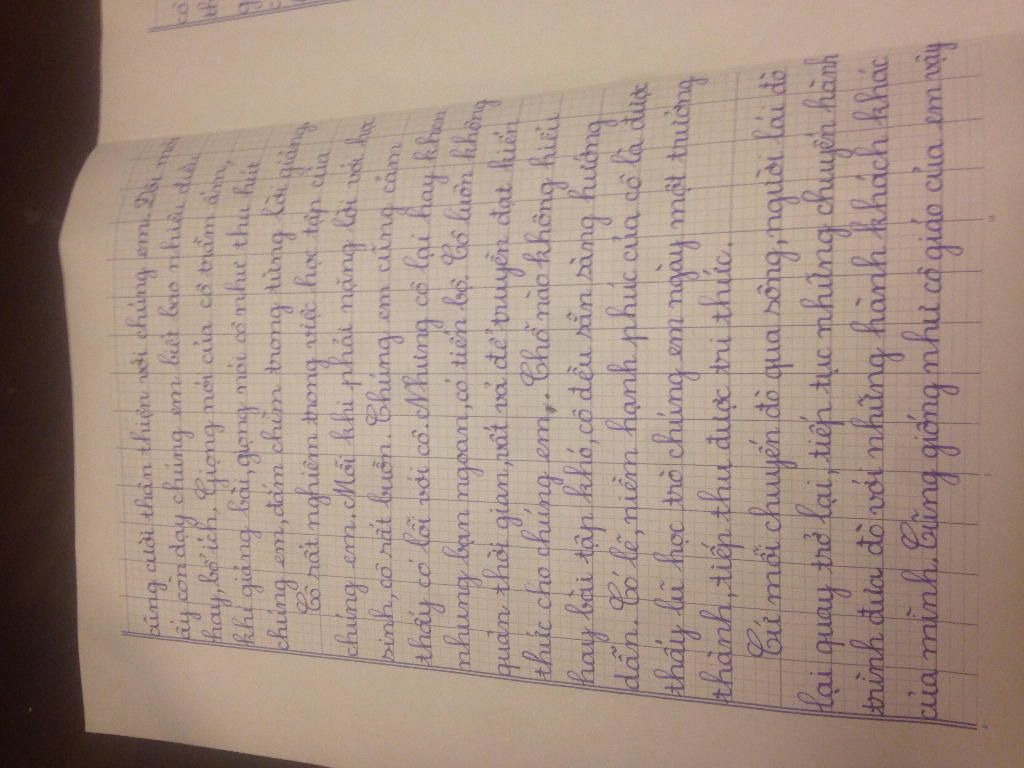 cũng cười thân thiện với chúng em. Đôi môi
ấy còn dạy chúng em biết bao nhiêu điều
hay, bổ ích. Giọng nói của cô trầm ấm,
khi giảng bài, giọng nói cô như thu hút
chúng em, đắm chìm trong từng lời giảng.
Cô rất nghiêm trong việc học tập của
chúng em. Mỗi khi phải nặng lời với học
sinh, cô rất buồn. Chúng em cũng cảm
thấy có lỗi với cô. Nhưng cô lại hay khen
những bạn ngoan, có tiến bộ. Cô luôn không
quản thời gian, vất vả để truyền đạt kiến
thức cho chúng em. Chỗ nào không hiểu
hay bài tập khó, cô đều sẵn sàng hướng
dẫn. Có lẽ, niềm hạnh phúc của cô là được
thấy lũ học trò chúng em ngày một trưởng
thành, tiếp thu được tri thức.
Cứ mỗi chuyến đò qua sông, người lái đò
lại quay trở lại, tiếp tục những chuyến hành
trình đưa đò với những hành khách khác
của mình. Cũng giống như cô giáo của em vậy